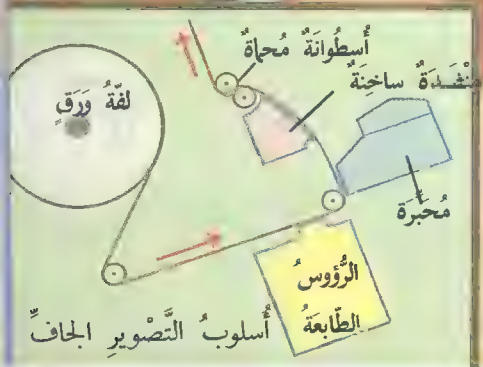 أُسطُوانَةٌ مُحماةٌ
مِنْضَدَةٌ ساخِنَةٌ
لفّةُ وَرَقٍ
مُحَبِّرَة
الرُّؤُوسُ
الطّابعَةُ
أُسلوبُ التَّصْويرِ الجافِّ